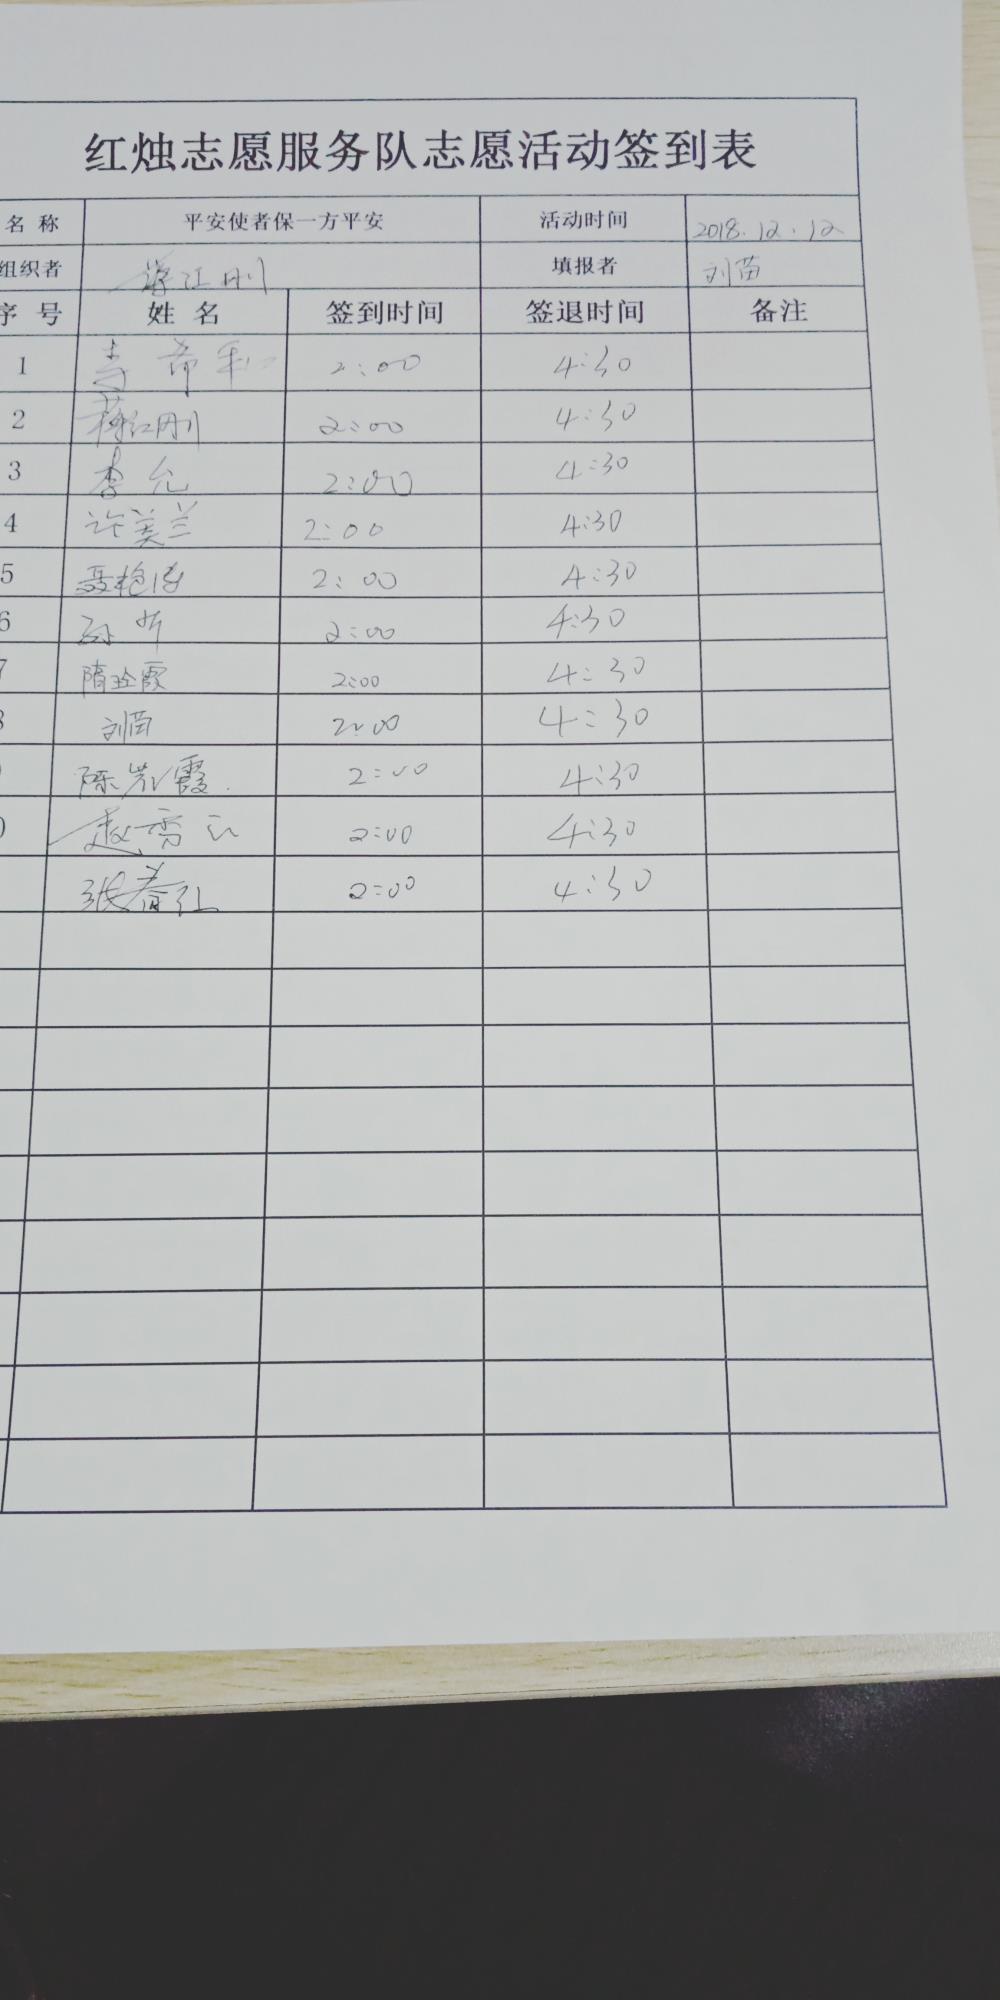 红烛志愿服务队志愿活动签到表
名 称 平安使者保一方平安 活动时间 2018.12.12
组织者 江刚 填报者 刘苗
序 号 姓 名 签到时间 签退时间 备注
1 2:00 4:30
2 2:00 4:30
3 李允 2:00 4:30
4 许美兰 2:00 4:30
5 聂艳 2:00 4:30
6 孙 2:00 4:30
7 隋玲霞 2:00 4:30
8 刘苗 2:00 4:30
陈 霞 2:00 4:30
0 赵秀云 2:00 4:30
张春红 2:00 4:30